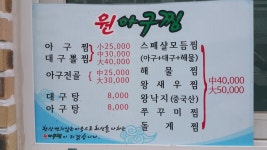 원아구찜
아구찜 小25,000
대구뽈찜 中30,000
大40,000
아구전골 中25,000
大30,000
대구탕 8,000
아구탕 8,000
스페샬모듬찜
(아구+대구+해물)
해물찜
왕새우찜
왕낙지(중국산)
쭈꾸미찜
돌게찜
中40,000
大50,000